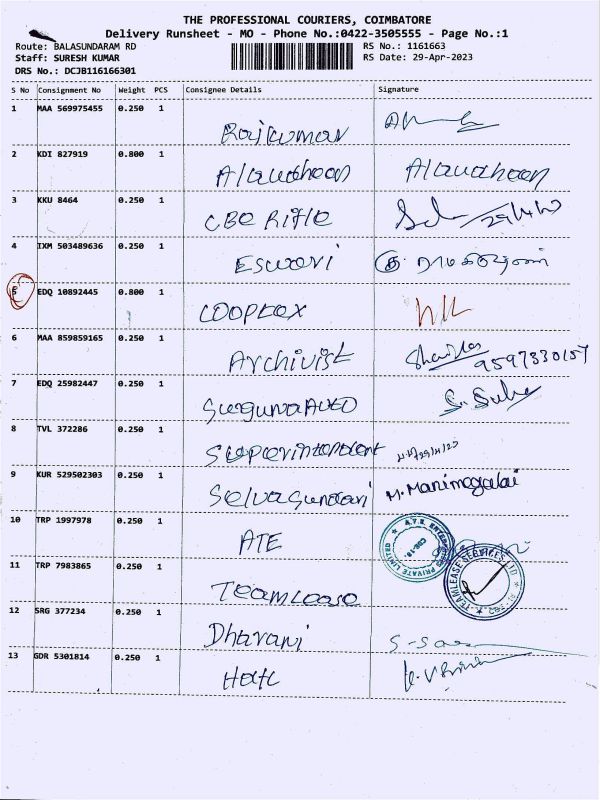 THE PROFESSIONAL COURIERS, COIMBATORE
Delivery Runsheet - MO - Phone No.:0422-3505555 - Page No.:1
Route: BALASUNDARAM RD RS No.: 1161663
Staff: SURESH KUMAR RS Date: 29-Apr-2023
DRS No.: DCJB116166301
S No Consignment No Weight PCS Consignee Details Signature
1 MAA 569975455 0.250 1
Rajkumar
2 KDI 827919 0.800 1
Alaudheen Alaudheen
3 KKU 8464 0.250 1
CBE Rifle
4 IXM 503489636 0.250 1
Eswari
5 EDQ 10892445 0.800 1
COOPTEX
6 MAA 859859165 0.250 1
Archivist 9597330157
7 EDQ 25982447 0.250 1
Suguna AUTO
8 TVL 372286 0.250 1
Superintendent
9 KUR 529502303 0.250 1
Selvasundari M. Manimegalai
10 TRP 1997978 0.250 1
ATE
11 TRP 7983865 0.250 1
Teamlease TEAMLEASE SERVICES LTD
12 SRG 377234 0.250 1
Dharani
13 GDR 5301814 0.250 1